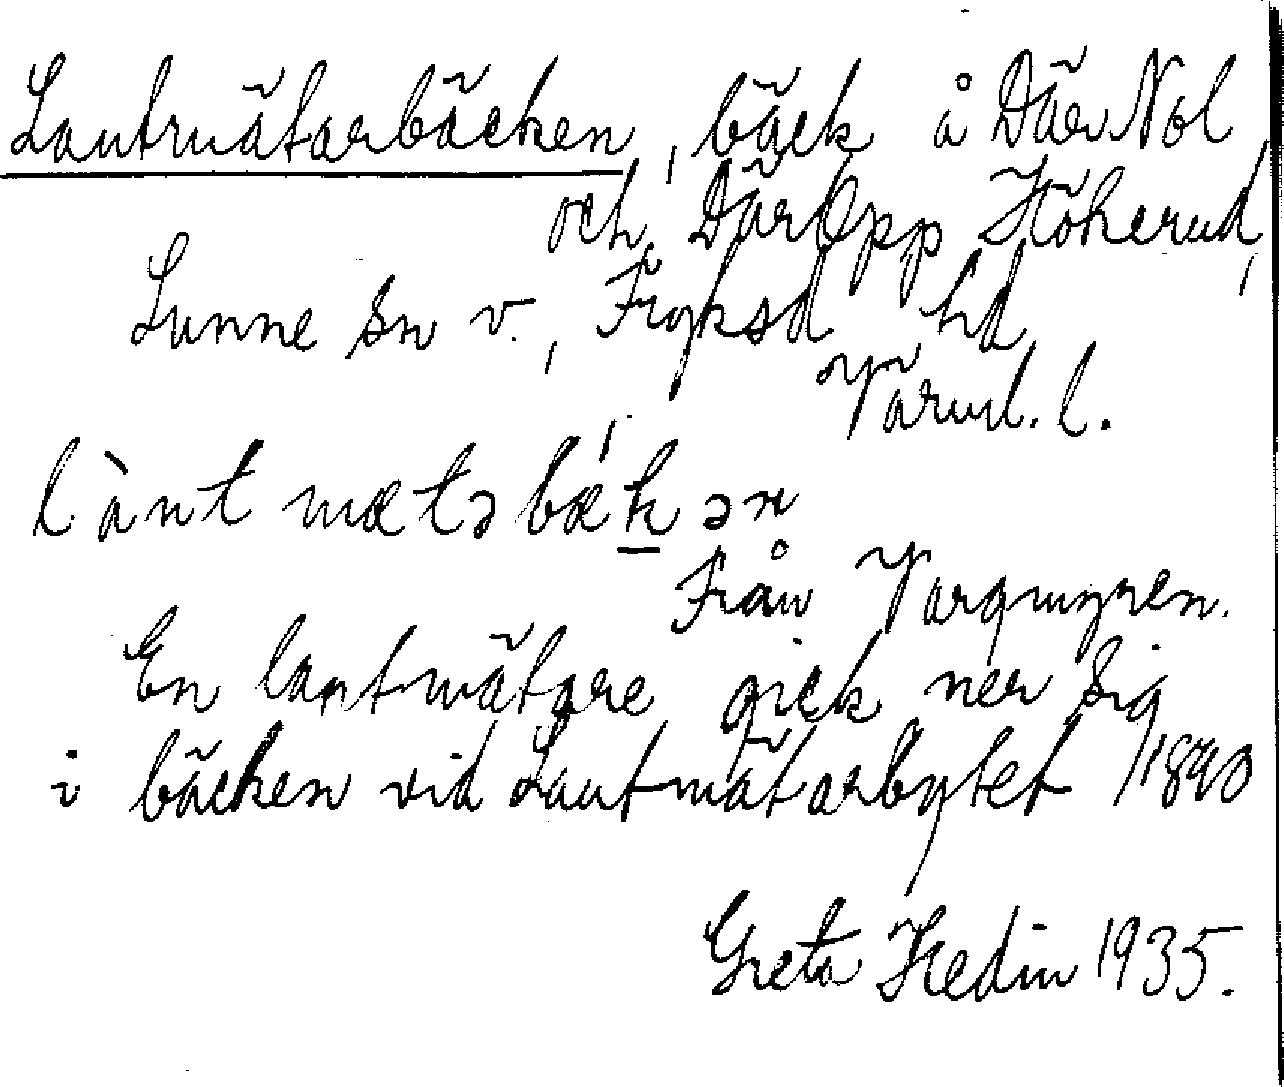 Lantmätarbäcken, bäck å Där Nol
och Där Opp Höherud,
Sunne sn v., Fryksd hd
Värml. l.
làntmætəbækən
Från Vargmyren.
En lantmätare gick ner sig
i bäcken vid Lantmätarbytet /1890
Greta Hedin 1935.